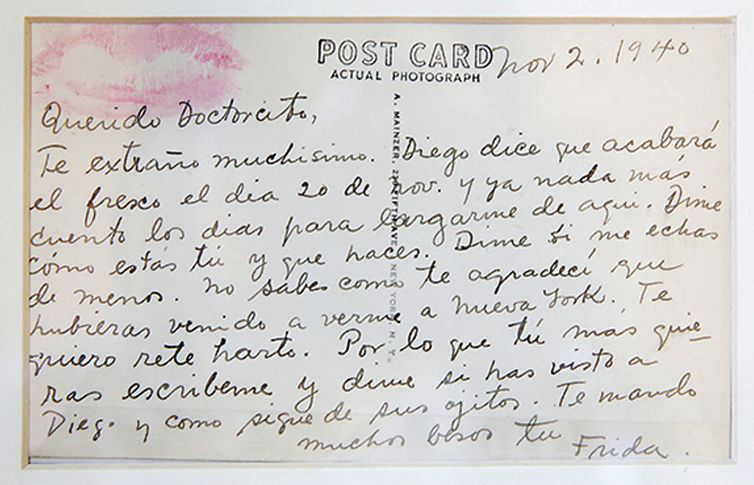 POST CARD
ACTUAL PHOTOGRAPH
Nov 2. 1940
Querido Doctorcito,
Te extraño muchisimo. Diego dice que acabará
el fresco el dia 20 de Nov. y ya nada más
cuento los dias para largarme de aqui. Dime
cómo estas tú y que haces. Dime si me echas
de menos. No sabes como te agradecí que
hubieras venido a verme a Nueva York. Te
quiero rete harto. Por lo que tú más quie–
ras escribeme y dime si has visto a
Diego y como sigue de sus ojitos. Te mando
muchos besos tu Frida.
A. MAINZER, AVE. NEW YORK, N. Y.